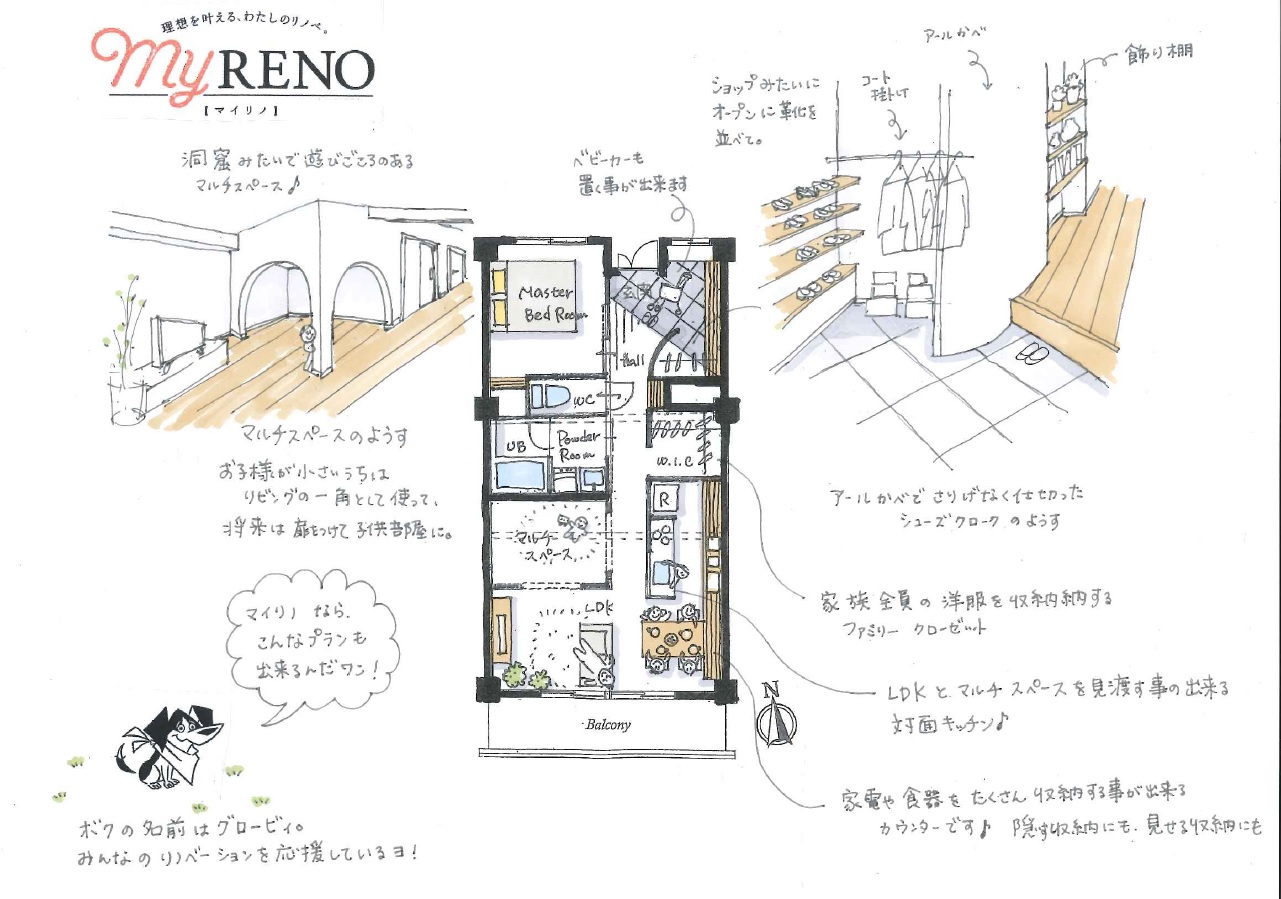 理想を叶える、わたしのリノベ。
My RENO
【マイリノ】
洞窟みたいで遊びごころのある
マルチスペース♪
マルチスペースのようす
お子様が小さいうちは
リビングの一角として使って、
将来は扉をつけて子供部屋に。
マイリノなら、
こんなプランも
出来るんだワン!
ボクの名前はグロービィ。
みんなのリノベーションを応援しているヨ!
ベビーカーも
置く事が出来ます
Master
Bed Room
玄関
Hall
WC
UB
Powder
Room
W.I.C
R
マルチ
スペース
LDK
Balcony
N
ショップみたいに
オープンに靴を
並べて。
コート
掛け
アールかべ
飾り棚
アールかべでさりげなく仕切った
シューズクロークのようす
家族全員の洋服を収納納する
ファミリークローゼット
LDKとマルチスペースを見渡す事の出来る
対面キッチン♪
家電や食器をたくさん収納する事が出来る
カウンターです♪ 隠す収納にも、見せる収納にも